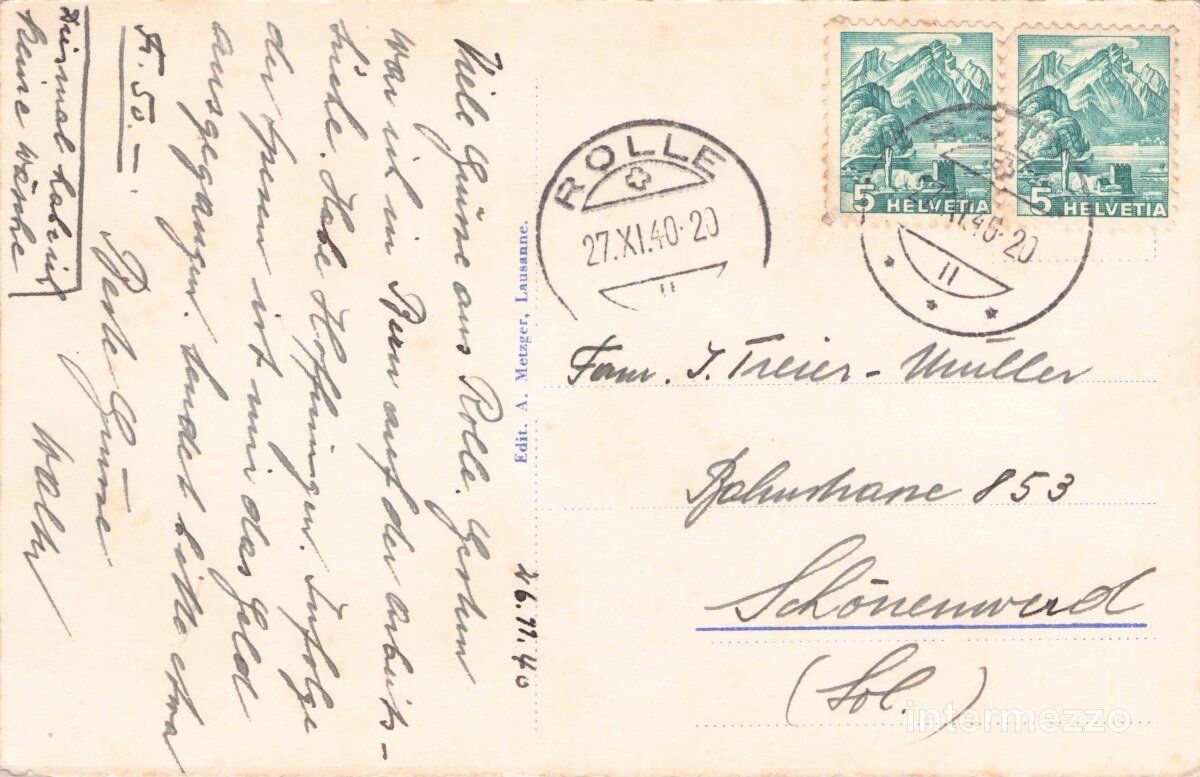 26.11.40
Viele Grüsse aus Rolle. Gestern
war ich in Bern auf der Arbeits-
suche. Habe Hoffnungen. Infolge
der Spesen ist mir das Geld
ausgegangen. Sendet bitte etwa
Fr. 50.—
Beste Grüsse
Walter
Diesmal habe ich
keine Wäsche
Edit. A. Metzger, Lausanne.
ROLLE
27.XI.40-20
II
5 HELVETIA
5 HELVETIA
XI.40-20
II
Fam. J. Treier-Müller
Bahnstrasse 853
Schönenwerd
(Sol.)
intermezzo